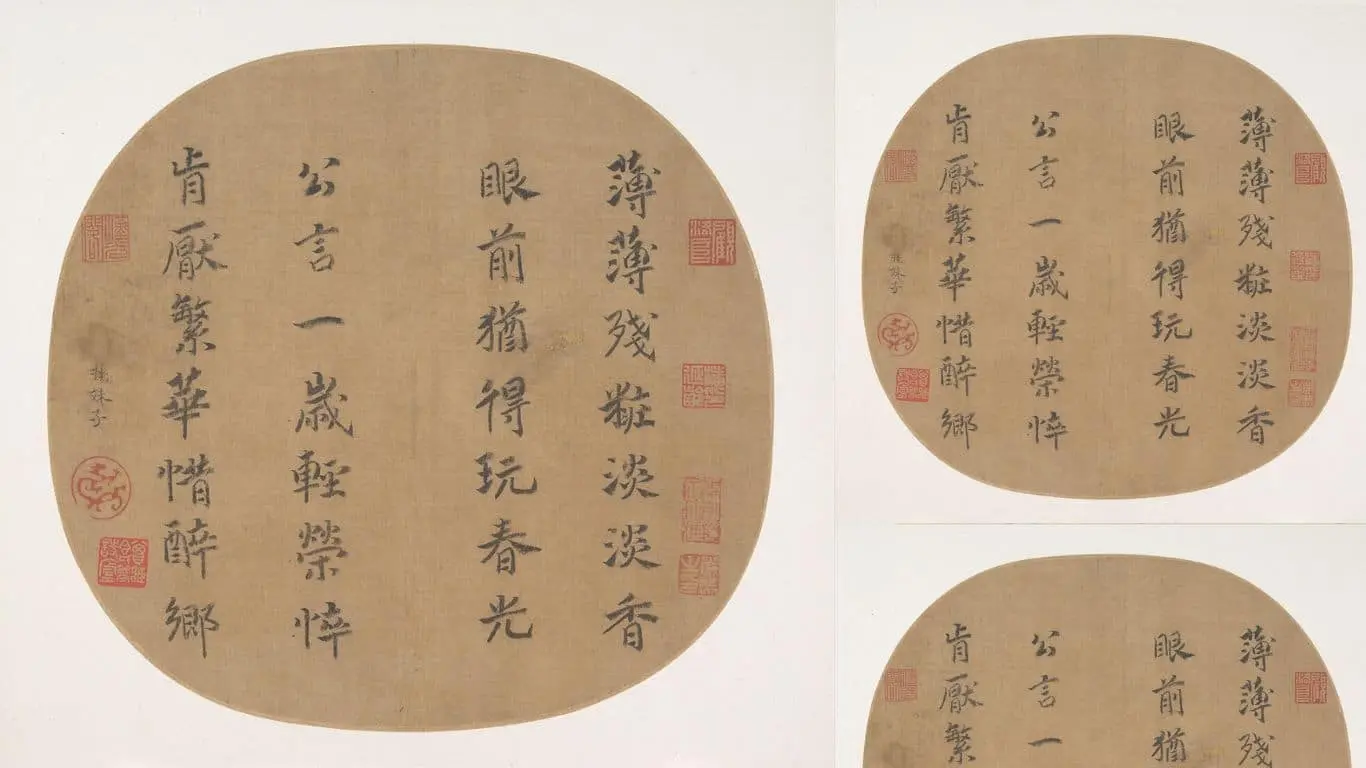 薄薄殘粧淡淡香
眼前猶得玩春光
公言一歳輕榮悴
肯厭繁華惜醉鄉
楊妹子
薄薄殘粧淡淡香
眼前猶得玩春光
公言一歳輕榮悴
肯厭繁華惜醉鄉
楊妹子
薄薄殘
眼前猶
公言一
肯厭繁